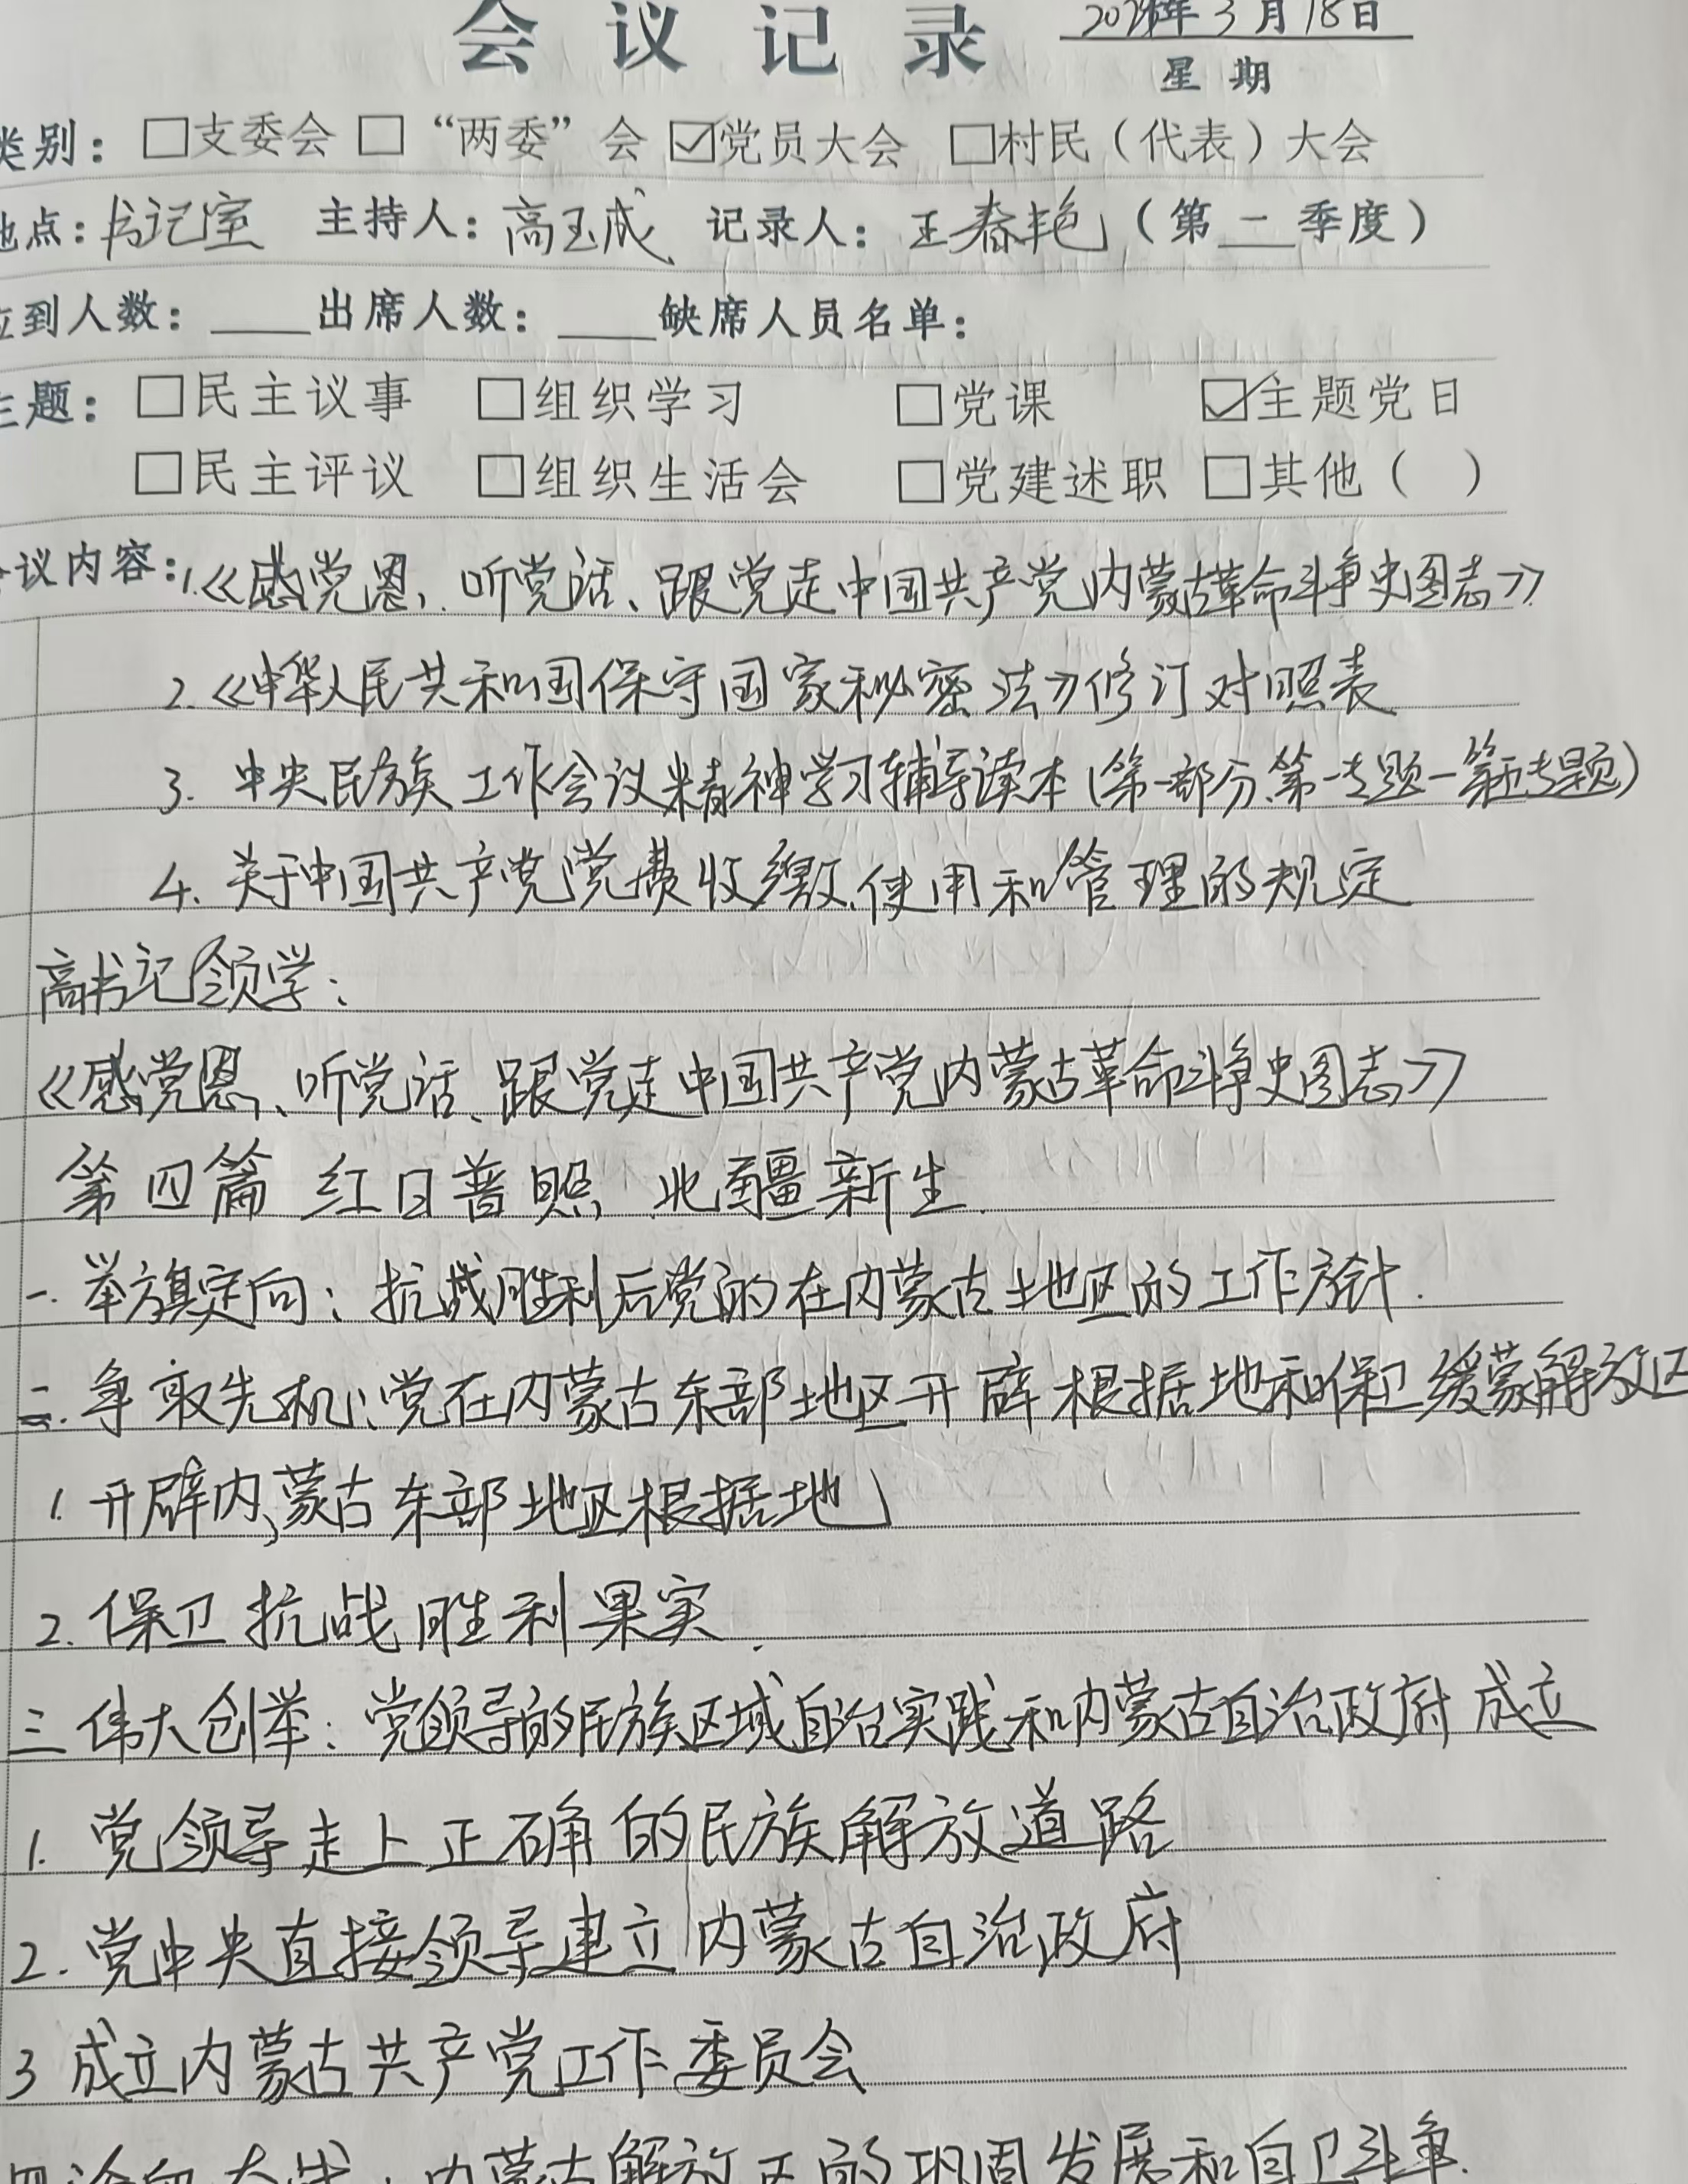 会议记录 2024年3月18日
星期
类别：□支委会 □“两委”会 ☑党员大会 □村民（代表）大会
地点：书记室 主持人：高玉成 记录人：王春艳（第一季度）
应到人数：____出席人数：____缺席人员名单：
主题：□民主议事 □组织学习 □党课 ☑主题党日
□民主评议 □组织生活会 □党建述职 □其他（ ）
会议内容：1.《感党恩、听党话、跟党走中国共产党内蒙古革命斗争史图志》
2.《中华人民共和国保守国家秘密法》修订对照表
3. 中央民族工作会议精神学习辅导读本(第一部分第一专题—第五专题)
4. 关于中国共产党党费收缴、使用和管理的规定
高书记领学：
《感党恩、听党话、跟党走中国共产党内蒙古革命斗争史图志》
第四篇 红日普照 北疆新生
一. 举旗定向：抗战胜利后党的在内蒙古地区的工作方针.
二. 争取先机：党在内蒙古东部地区开辟根据地和保卫绥蒙解放区
1. 开辟内蒙古东部地区根据地
2. 保卫抗战胜利果实.
三 伟大创举：党领导的民族区域自治实践和内蒙古自治政府成立
1. 党领导走上正确的民族解放道路
2. 党中央直接领导建立内蒙古自治政府
3 成立内蒙古共产党工作委员会
四 浴血奋战：内蒙古解放区的巩固发展和自卫斗争.